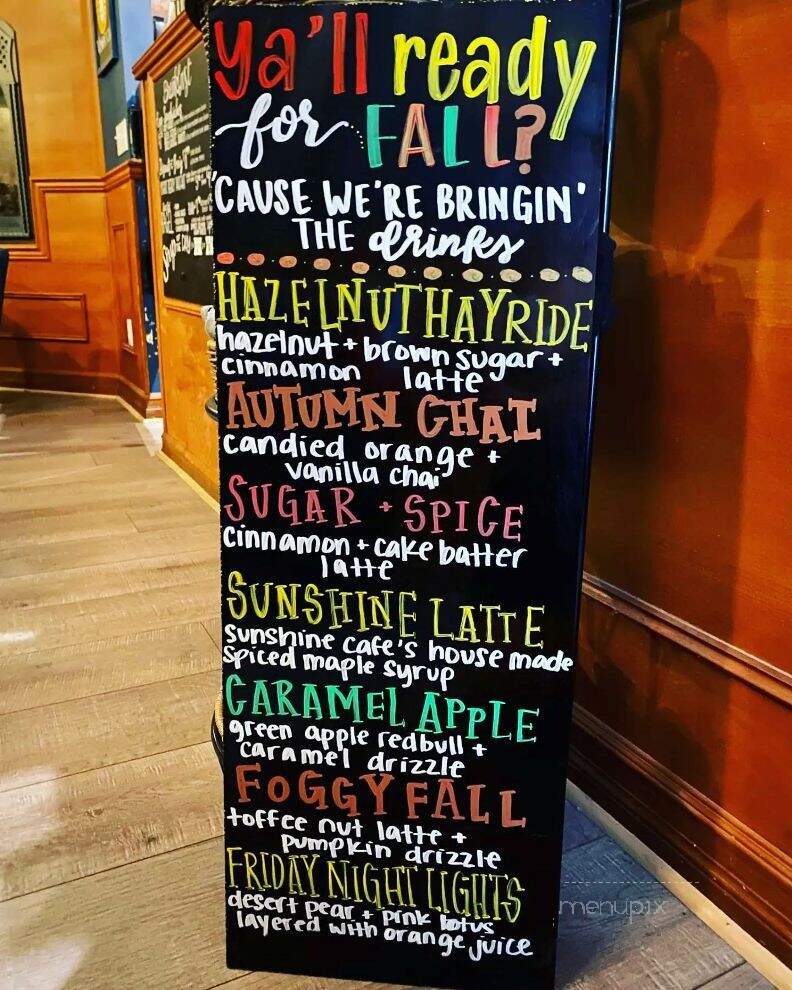 Ya'll ready
for FALL?
'CAUSE WE'RE BRINGIN'
THE drinks
HAZELNUT HAYRIDE
hazelnut + brown sugar +
cinnamon latte
AUTUMN CHAI
candied orange +
vanilla chai
SUGAR + SPICE
cinnamon + cake batter
latte
SUNSHINE LATTE
sunshine cafe's house made
spiced maple syrup
CARAMEL APPLE
green apple redbull +
caramel drizzle
FOGGY FALL
toffee nut latte +
pumpkin drizzle
FRIDAY NIGHT LIGHTS
desert pear + pink lotus
layered with orange juice
menupix
Breakfast